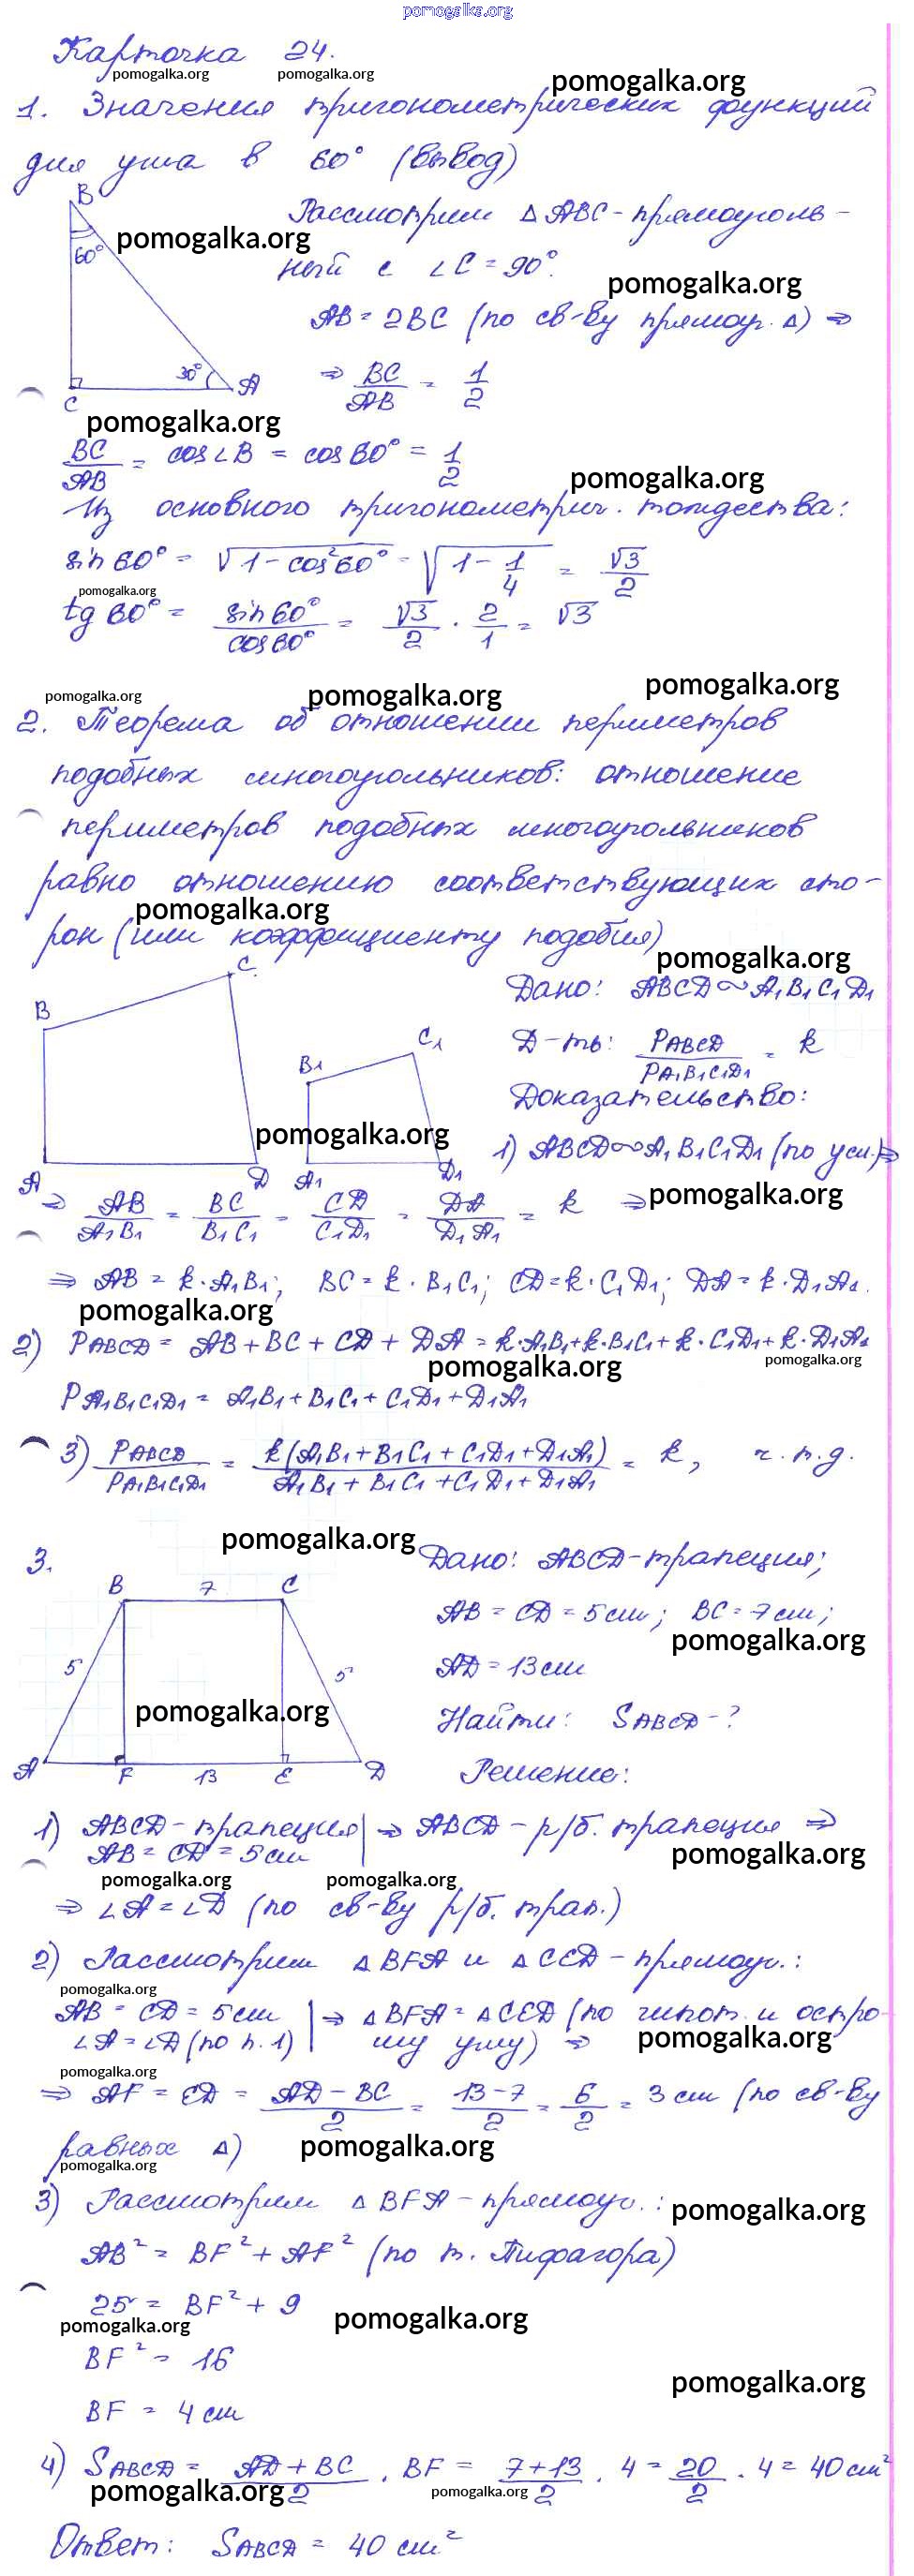 pomogalka.org
Карточка 24.
pomogalka.org pomogalka.org pomogalka.org
1. Значения тригонометрических функций
для угла в 60° (вывод)
B
60°
pomogalka.org
Рассмотрим ΔABC - прямоуголь-
ный с ∠C = 90°.
pomogalka.org
AB = 2BC (по св-ву прямоуг. Δ) ⇒
30° A
C
⇒ BC/AB = 1/2
pomogalka.org
BC/AB = cos∠B = cos 60° = 1/2
pomogalka.org
Из основного тригонометрич. тождества:
sin 60° = √(1 - cos²60°) = √(1 - 1/4) = √3/2
pomogalka.org
tg 60° = sin 60°/cos 60° = √3/2 · 2/1 = √3
pomogalka.org pomogalka.org pomogalka.org
2. Теорема об отношении периметров
подобных многоугольников: отношение
периметров подобных многоугольников
равно отношению соответствующих сто-
pomogalka.org
рон (или коэффициенту подобия)
pomogalka.org
B C
B1 C1
A D A1 D1
pomogalka.org
Дано: ABCD ~ A1B1C1D1
Д-ть: PABCD/PA1B1C1D1 = k
Доказательство:
1) ABCD ~ A1B1C1D1 (по усл.) ⇒
⇒ AB/A1B1 = BC/B1C1 = CD/C1D1 = DA/D1A1 = k ⇒
pomogalka.org
⇒ AB = k·A1B1; BC = k·B1C1; CD = k·C1D1; DA = k·D1A1.
pomogalka.org
2) PABCD = AB + BC + CD + DA = k·A1B1 + k·B1C1 + k·C1D1 + k·D1A1
pomogalka.org pomogalka.org
PA1B1C1D1 = A1B1 + B1C1 + C1D1 + D1A1
3) PABCD/PA1B1C1D1 = k(A1B1 + B1C1 + C1D1 + D1A1)/A1B1 + B1C1 + C1D1 + D1A1 = k, ч.т.д.
pomogalka.org
3.
B 7 C
5 5
A F 13 E D
pomogalka.org
Дано: ABCD - трапеция;
AB = CD = 5 см; BC = 7 см;
pomogalka.org
AD = 13 см
Найти: SABCD - ?
Решение:
1) ABCD - трапеция | ⇒ ABCD - р/б. трапеция ⇒
AB = CD = 5 см
pomogalka.org
pomogalka.org pomogalka.org
⇒ ∠A = ∠D (по св-ву р/б. трап.)
2) Рассмотрим ΔBFA и ΔCED - прямоуг.:
pomogalka.org
AB = CD = 5 см | ⇒ ΔBFA = ΔCED (по гипот. и остро-
∠A = ∠D (по п. 1) му углу) ⇒
pomogalka.org
pomogalka.org
⇒ AF = ED = AD - BC/2 = 13 - 7/2 = 6/2 = 3 см (по св-ву
равных Δ)
pomogalka.org
pomogalka.org
3) Рассмотрим ΔBFA - прямоуг.:
pomogalka.org
AB² = BF² + AF² (по т. Пифагора)
25 = BF² + 9
pomogalka.org pomogalka.org
BF² = 16
pomogalka.org
BF = 4 см
4) SABCD = AD + BC/2 · BF = 7 + 13/2 · 4 = 20/2 · 4 = 40 см²
pomogalka.org pomogalka.org
Ответ: SABCD = 40 см²